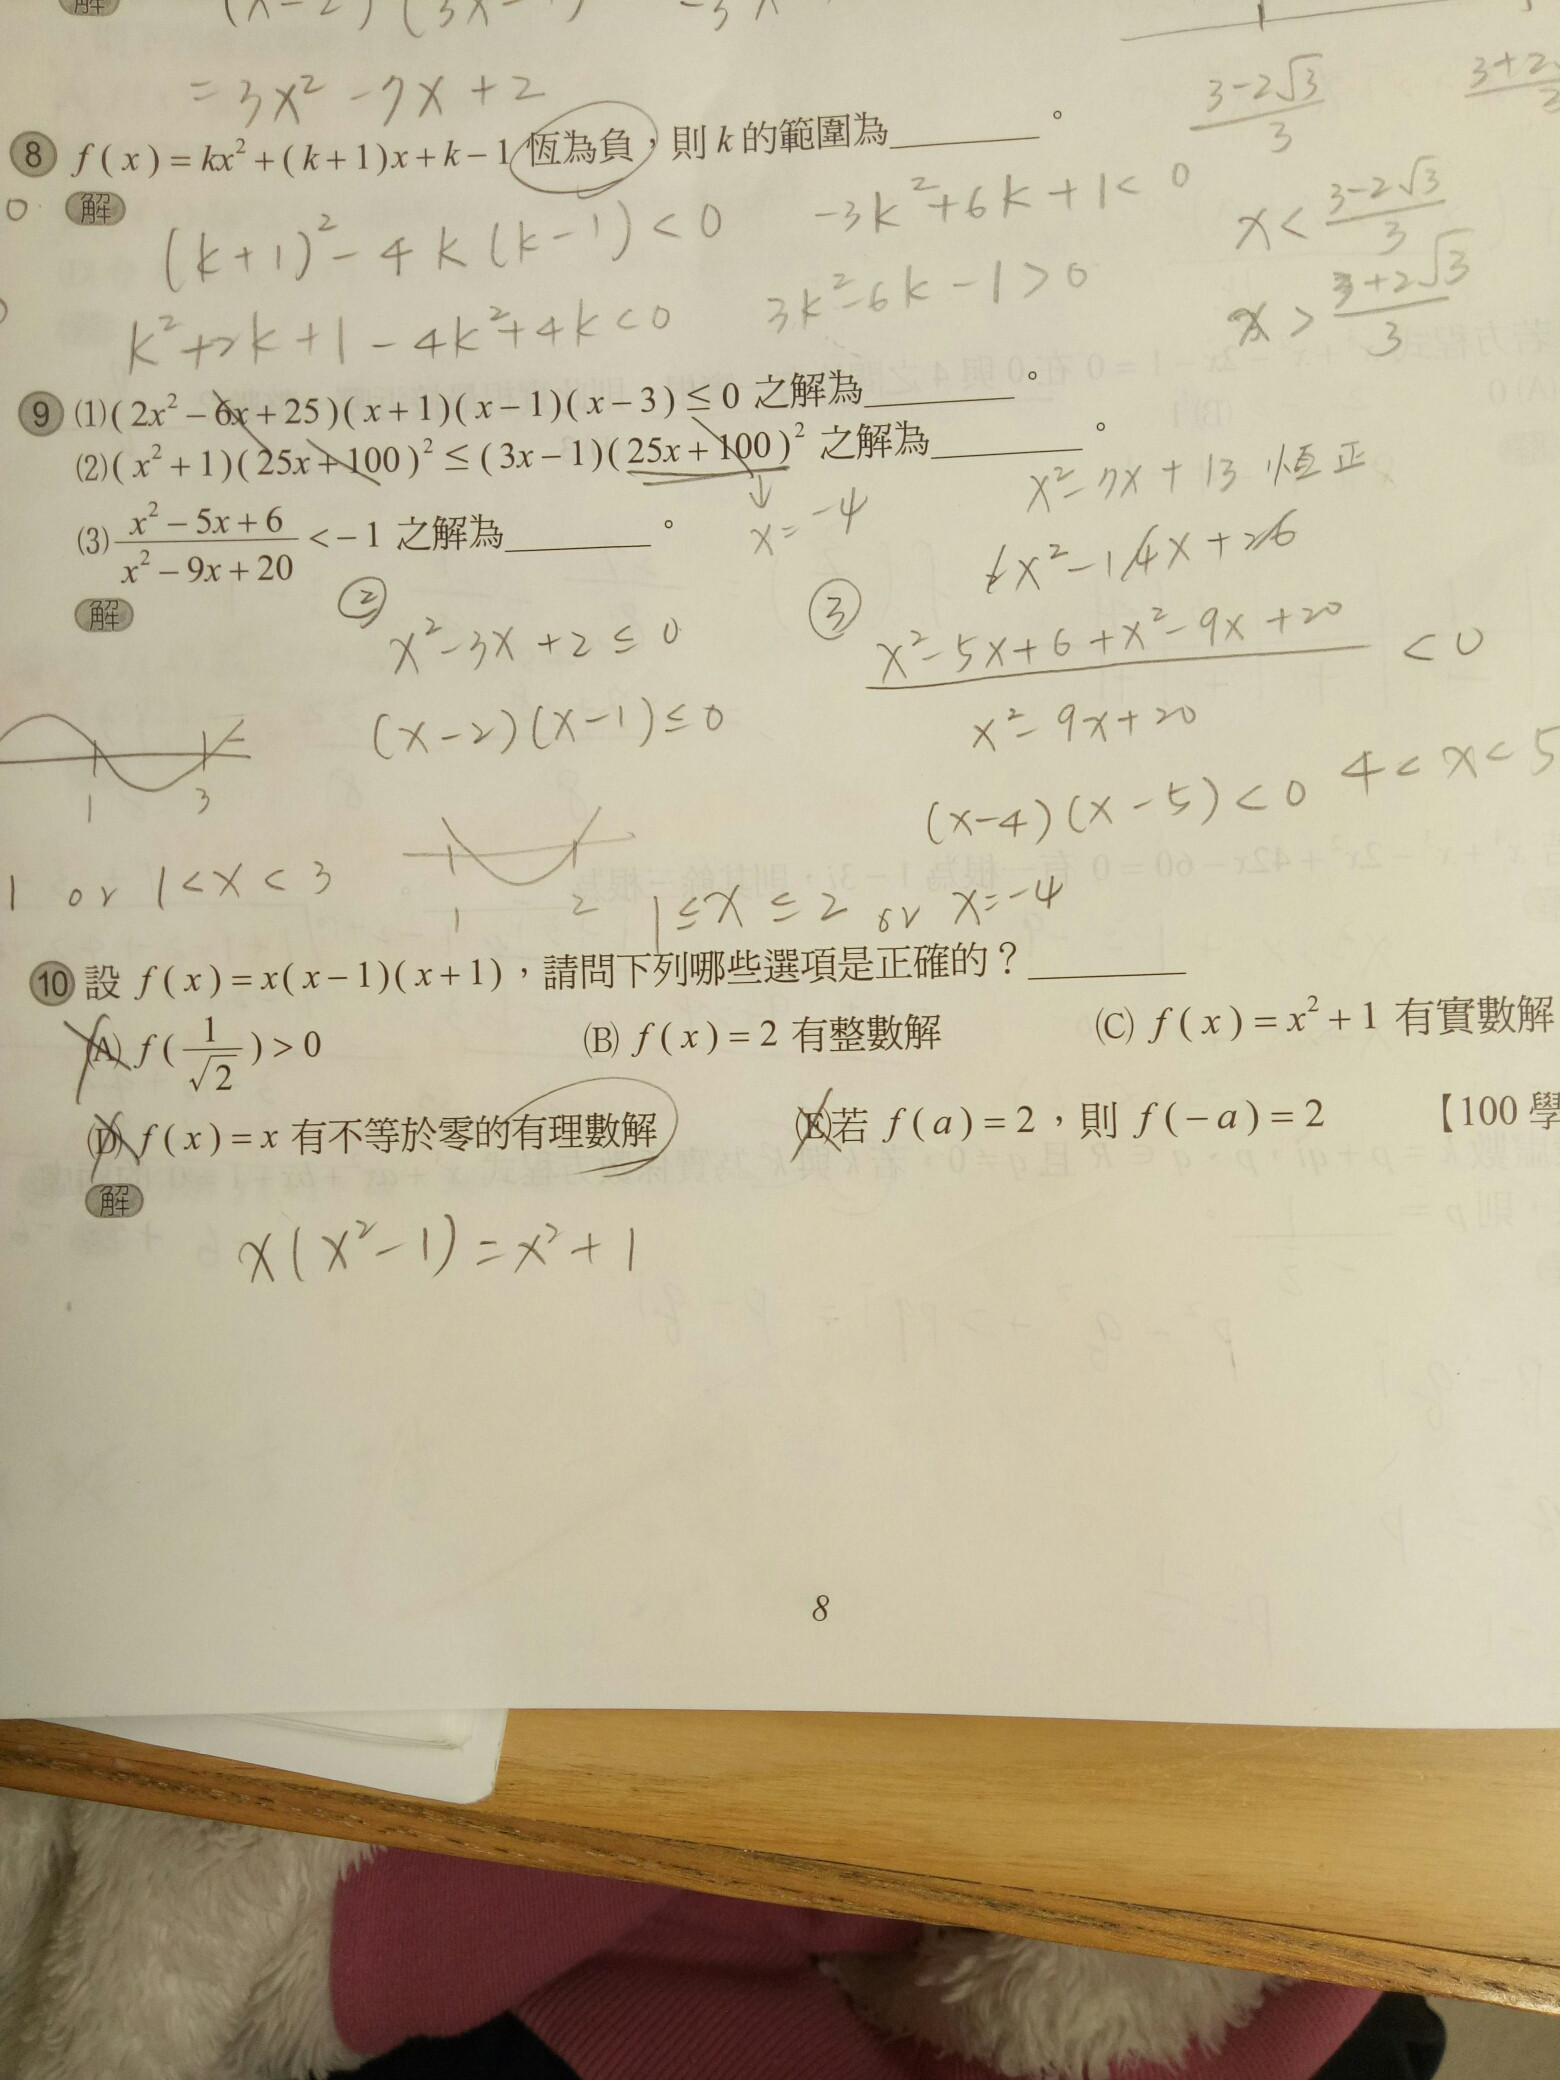 解
= 3x² - 7x + 2
3-2√3 / 3
8 f(x)=kx²+(k+1)x+k-1 恆為負，則 k 的範圍為______。
解
(k+1)² - 4k(k-1) < 0
-3k²+6k+1 < 0
x < 3-2√3 / 3
k²+2k+1-4k²+4k<0
3k²-6k-1>0
x > 3+2√3 / 3
9 (1)(2x²-6x+25)(x+1)(x-1)(x-3)≤0 之解為______。
(2)(x²+1)(25x+100)²≤(3x-1)(25x+100)² 之解為______。
↓
x=-4
x²-7x+13 恆正
(3) x²-5x+6 / x²-9x+20 <-1 之解為______。
2x²-14x+26
解
②
x²-3x+2≤0
(x-2)(x-1)≤0
③
x²-5x+6+x²-9x+20 / x²-9x+20 < 0
(x-4)(x-5)<0
4<x<5
1 3
1 or 1<x<3
1 2
1≤x≤2 or x=-4
10 設 f(x)=x(x-1)(x+1)，請問下列哪些選項是正確的？______
(A) f(1/√2)>0
(B) f(x)=2 有整數解
(C) f(x)=x²+1 有實數解
(D) f(x)=x 有不等於零的有理數解
(E)若 f(a)=2，則 f(-a)=2
【100 學
解
x(x²-1)=x²+1
8